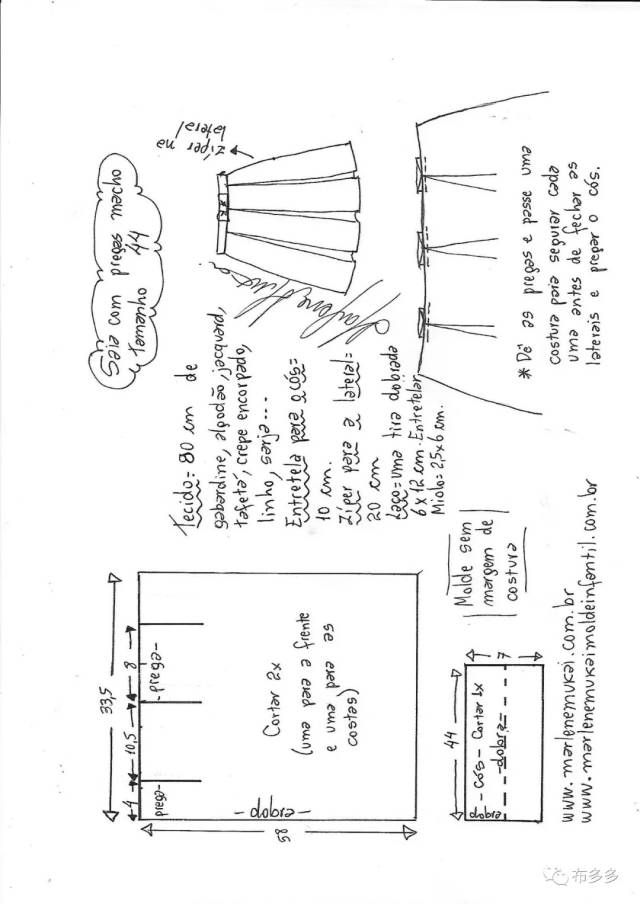 Saia com pregas macho
Tamanho 44
zíper na
lateral
Tecido = 80 cm de
gabardine, algodão, jacquard,
tafetá, crepe encorpado,
linho, sarja...
Entretela para o cós =
10 cm.
Zíper para a lateral =
20 cm
Laço = uma tira dobrada
6 x 12 cm. Entretelar
Miolo = 2,5 x 6 cm.
* Dê as pregas e passe uma
costura para segurar cada
uma antes de fechar as
laterais e pregar o cós.
33,5
4
10,5
8
prega -
- prega -
Cortar 2x
(uma para a frente
e uma para as
costas)
- dobra -
58
Molde sem
margem de
costura
44
7
- Cós - Cortar 1x
- dobra -
dobra
www.marlenemukai.com.br
www.marlenemukaimoldeinfantil.com.br
布多多